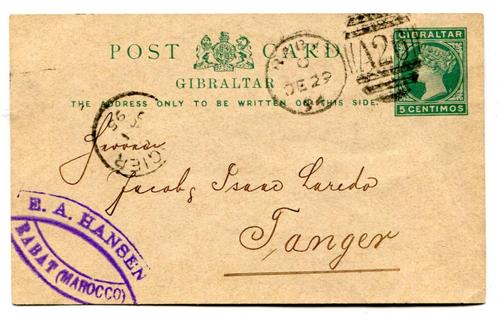 POST CARD
GIBRALTAR
THE ADDRESS ONLY TO BE WRITTEN ON THIS SIDE.
GIBRALTAR
5 CENTIMOS
A26
DE 29
94
95
Jacob & Isaac Laredo
Tanger
E. A. HANSEN
RABAT (MAROCCO)